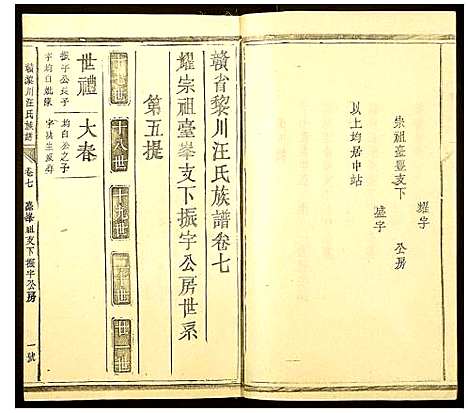 耀字
崇祖臺璺支下 公房
盛字
以上均居中站
贛省黎川汪氏族譜卷七
耀宗祖臺峯支下振字公房世系
第五提
十七世 十八世 十九世 二十世 廿一世
世禮 大春
振字公長子
字均白
均白公之子
贛黎川汪氏族譜 卷七 臺峯祖支下振字公房 一號